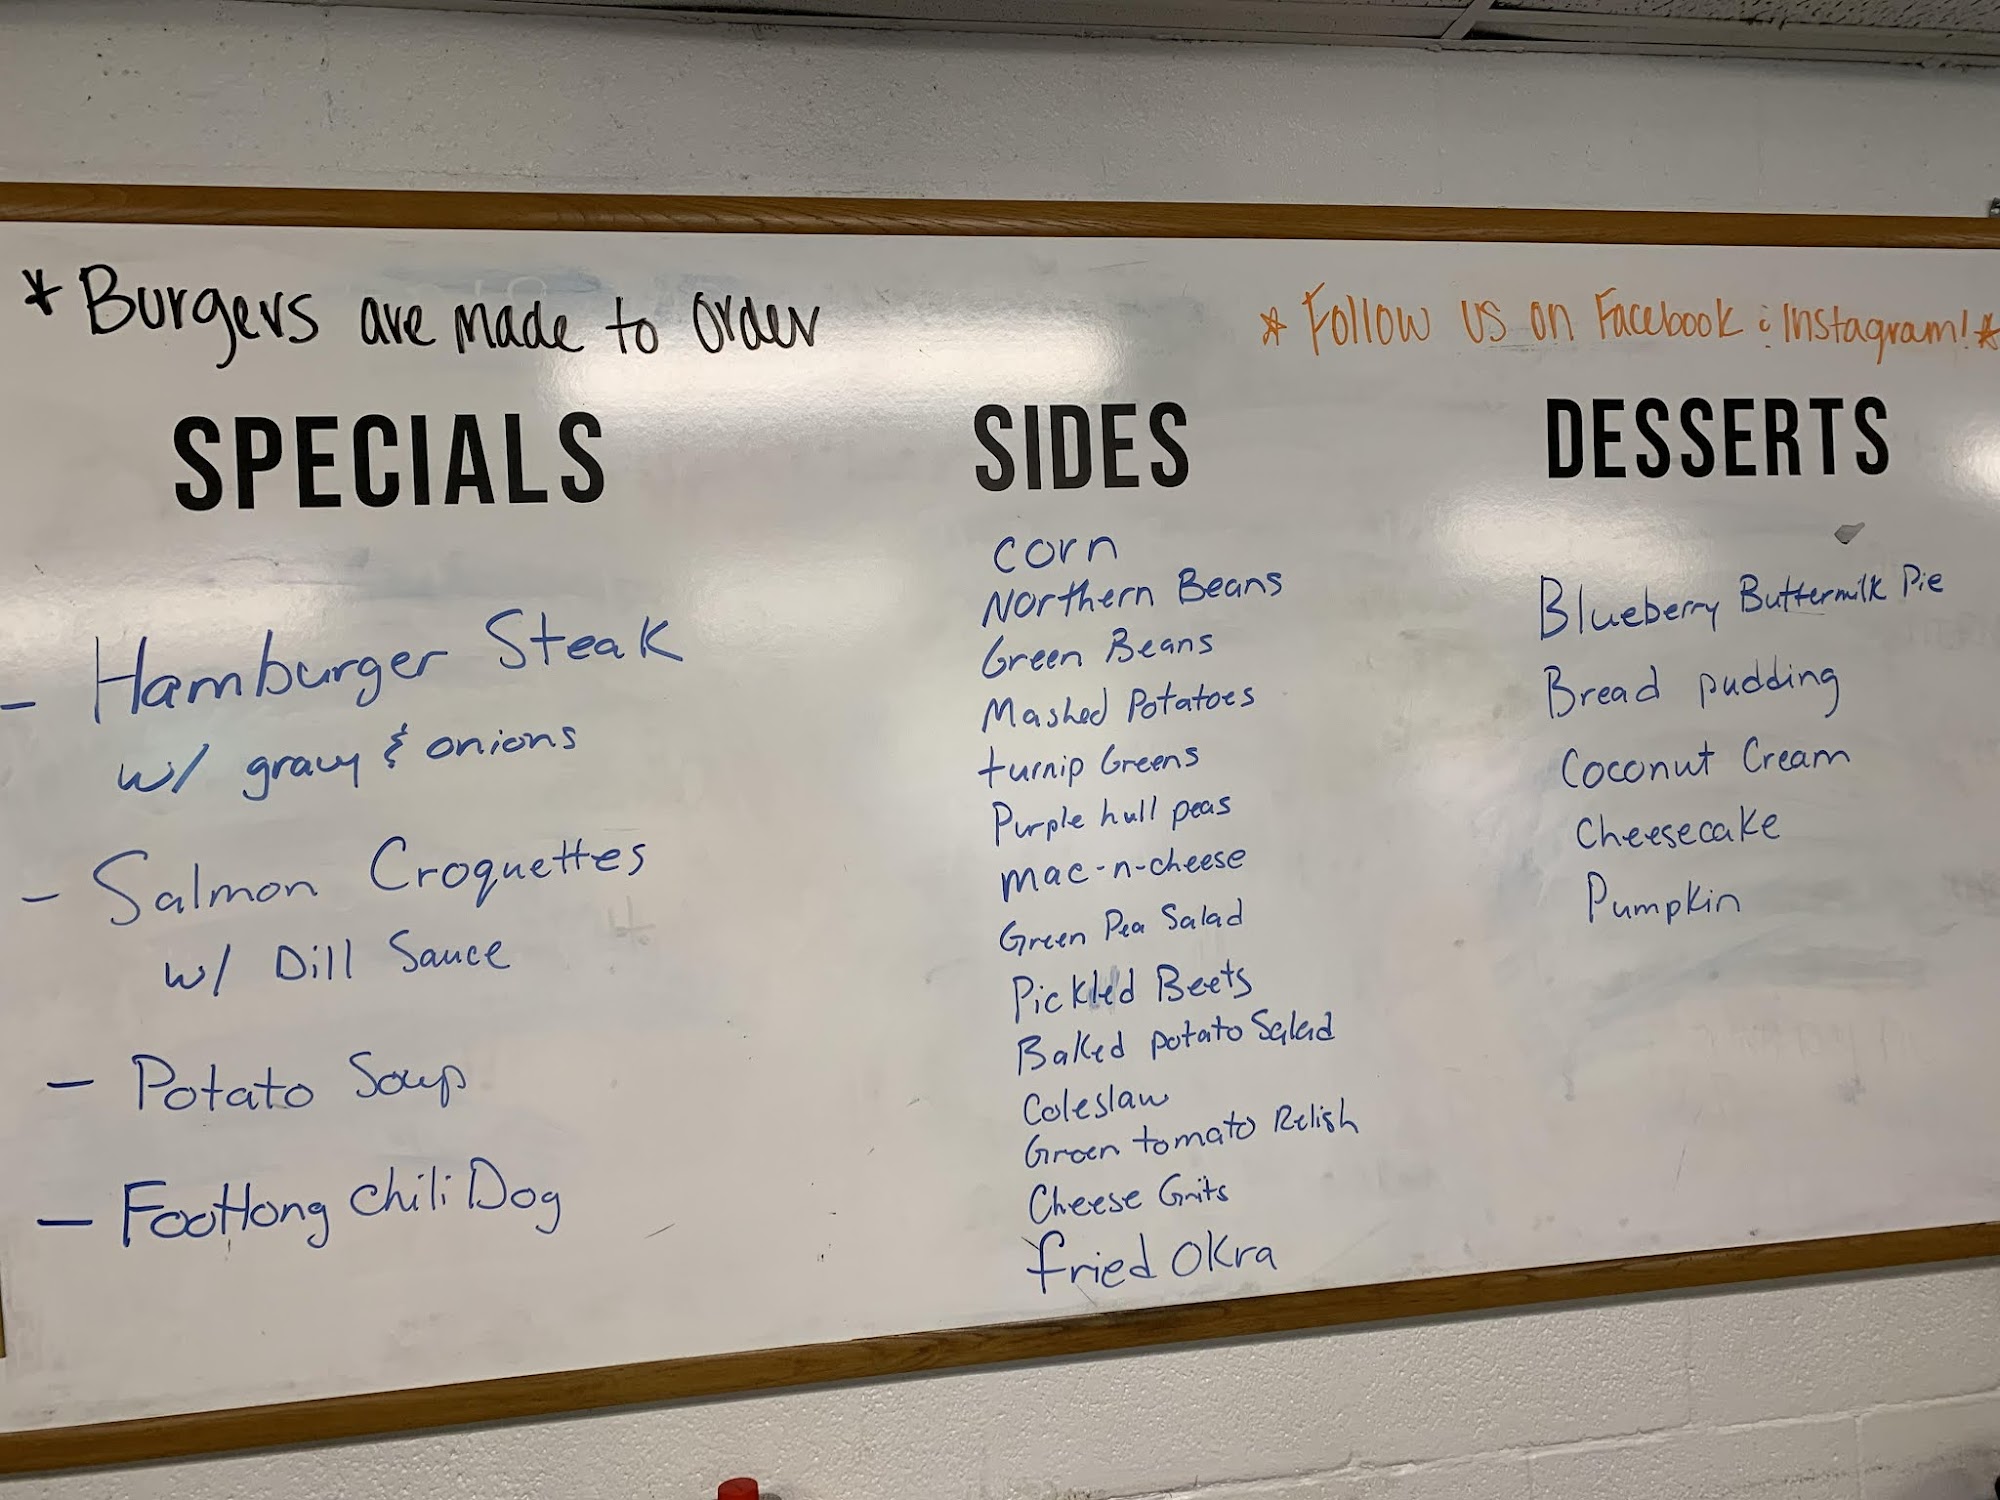 *Burgers are made to order
* Follow us on Facebook & Instagram! *
SPECIALS
- Hamburger Steak
w/ gravy & onions
- Salmon Croquettes
w/ Dill Sauce
- Potato Soup
- Footlong Chili Dog
SIDES
Corn
Northern Beans
Green Beans
Mashed Potatoes
turnip Greens
Purple hull peas
mac-n-cheese
Green Pea Salad
Pickled Beets
Baked potato Salad
Coleslaw
Green tomato Relish
Cheese Grits
fried Okra
DESSERTS
Blueberry Buttermilk Pie
Bread pudding
Coconut Cream
Cheesecake
Pumpkin